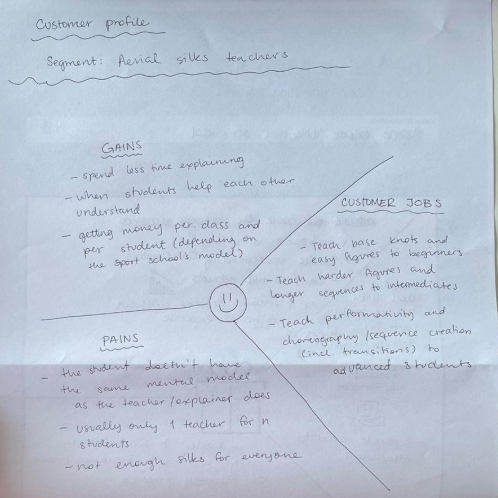 Customer profile
Segment: Aerial silks teachers
GAINS
- spend less time explaining
- when students help each other
understand
- getting money per class and
per student (depending on
the sport school's model)
CUSTOMER JOBS
- Teach base knots and
easy figures to beginners
- Teach harder figures and
longer sequences to intermediates
- Teach performativity and
choreography/sequence creation
(incl transitions) to
advanced students
PAINS
- the student doesn't have
the same mental model
as the teacher/explainer does
- usually only 1 teacher for n
students
- not enough silks for everyone